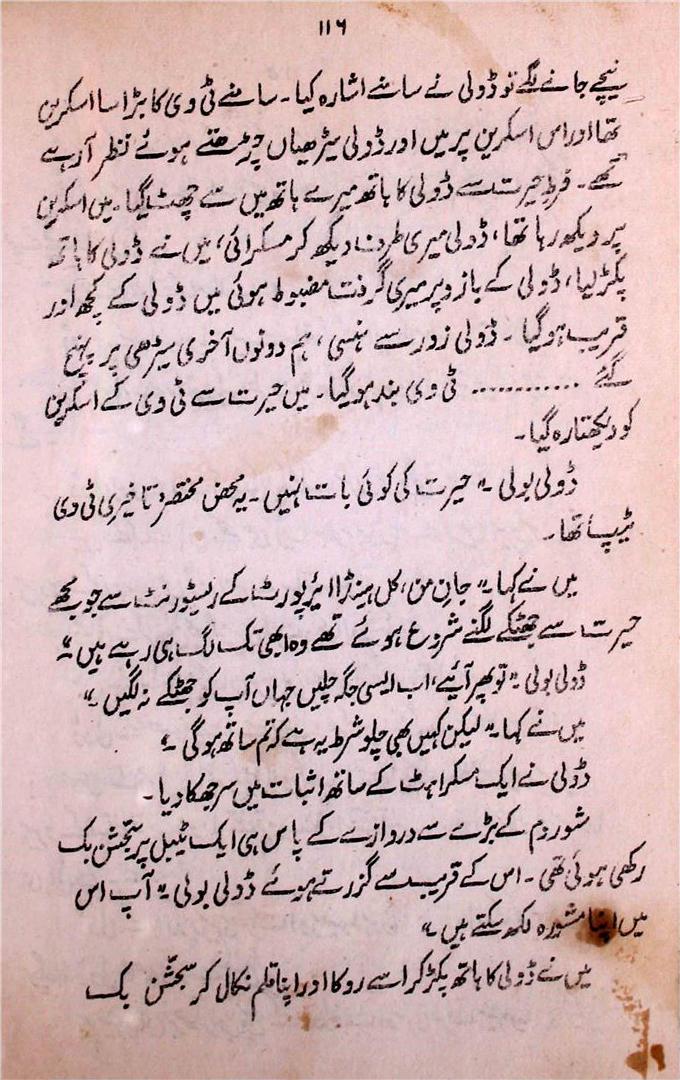 ۱۱۶
نیچے جانے لگے تو ڈولی نے سامنے اشارہ کیا۔ سامنے ٹی وی کا بڑا سا اسکرین
تھا اور اس اسکرین پر میں اور ڈولی سیڑھیاں چڑھتے ہوئے نظر آ رہے
تھے۔ فرطِ حیرت سے ڈولی کا ہاتھ میرے ہاتھ میں سے چھٹ گیا۔ میں اسکرین
پر دیکھ رہا تھا، ڈولی میری طرف دیکھ کر مسکرائی، میں نے ڈولی کا ہاتھ
پکڑ لیا، ڈولی کے بازو پر میری گرفت مضبوط ہوئی میں ڈولی کے کچھ اور
قریب ہو گیا۔ ڈولی زور سے ہنسی، ہم دونوں آخری سیڑھی پر پہنچ
گئے ............ ٹی وی بند ہو گیا۔ میں حیرت سے ٹی وی کے اسکرین
کو دیکھتا رہ گیا۔
ڈولی بولی۔ " حیرت کی کوئی بات نہیں۔ یہ محض مختصر تاخیری ٹی وی
ٹیپ تھا۔
میں نے کہا۔ " جانِ من، کل ہینڈا ایئرپورٹ کے ریسٹورنٹ سے جو مجھے
حیرت سے جھٹکے لگنے شروع ہوئے تھے وہ ابھی تک لگ ہی رہے ہیں۔ "
ڈولی بولی۔ " تو پھر آئیے، اب ایسی جگہ چلیں جہاں آپ کو جھٹکے نہ لگیں۔ "
میں نے کہا۔ " لیکن کہیں بھی چلو شرط یہ ہے کہ تم ساتھ ہو گی۔ "
ڈولی نے ایک مسکراہٹ کے ساتھ اثبات میں سر جھکا دیا۔
شوروم کے بڑے سے دروازے کے پاس ہی ایک ٹیبل پر سجشن بک
رکھی ہوئی تھی۔ اس کے قریب سے گزرتے ہوئے ڈولی بولی۔ " آپ اس
میں اپنا مشورہ لکھ سکتے ہیں۔ "
میں نے ڈولی کا ہاتھ پکڑ کر اسے روکا اور اپنا قلم نکال کر سجشن بک